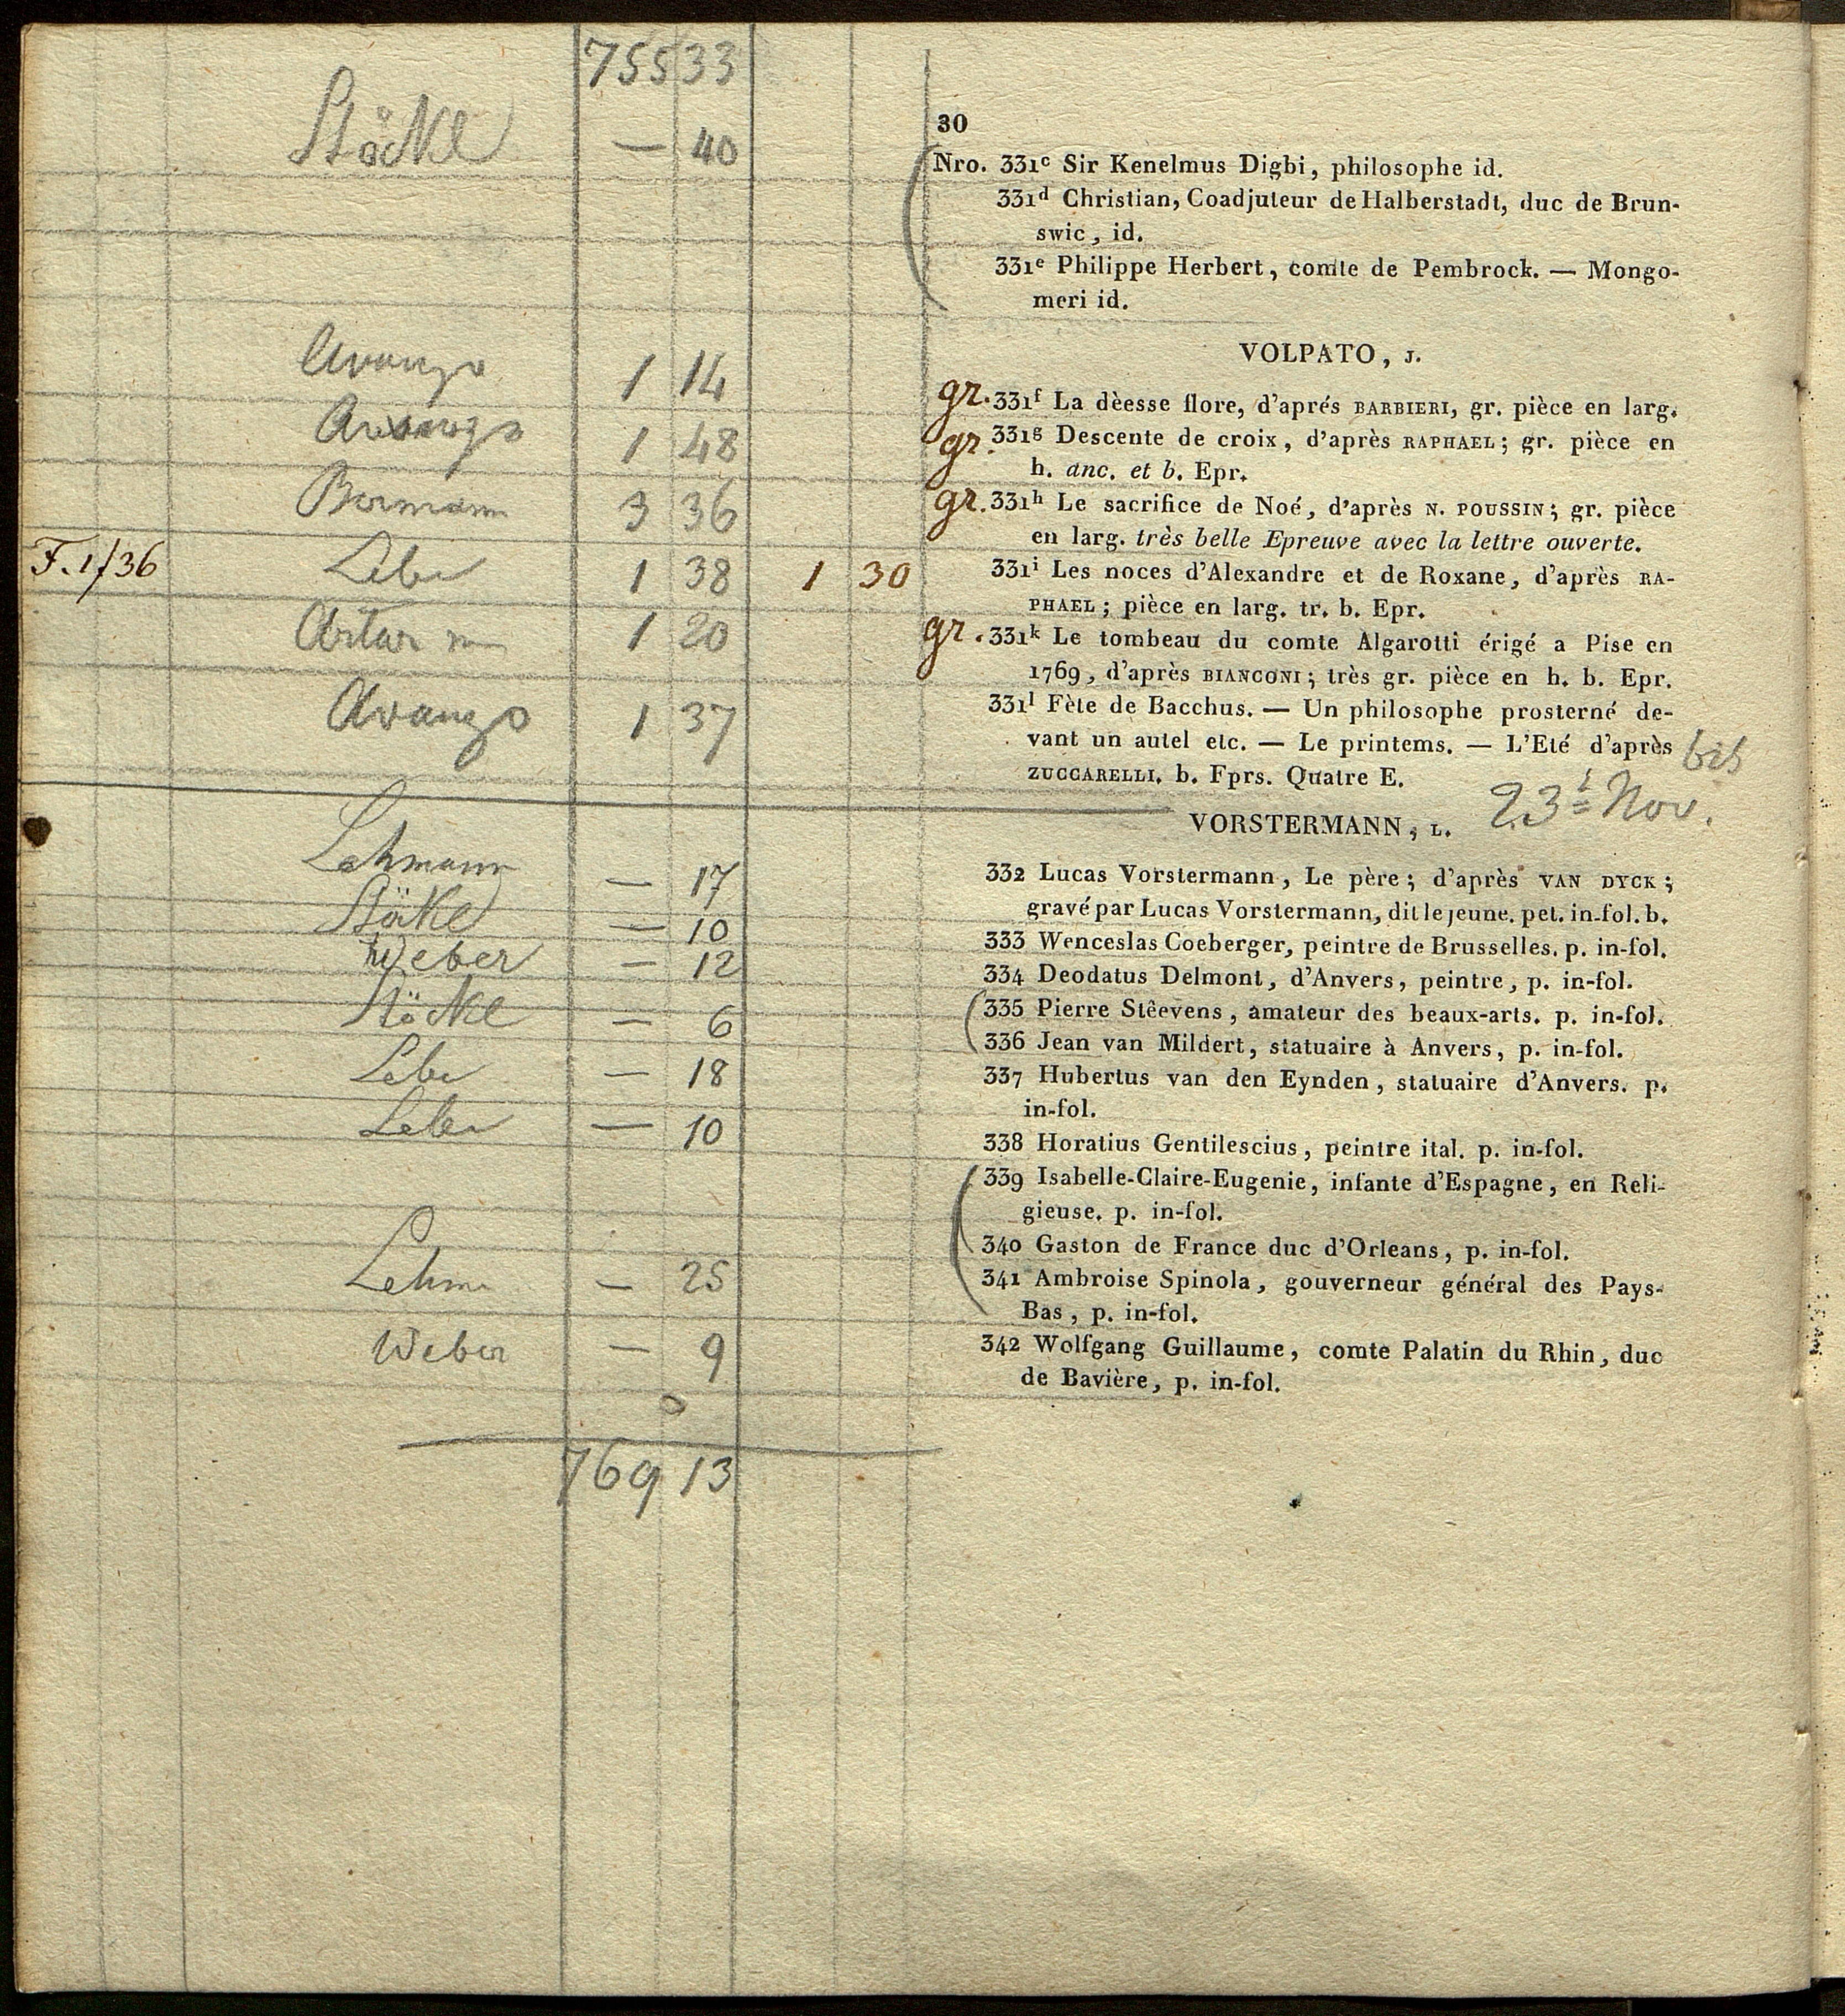 755 33
30
Stöckl — 40
Nro. 331c Sir Kenelmus Digbi, philosophe id.
331d Christian, Coadjuteur de Halberstadt, duc de Brun-
swic, id.
331e Philippe Herbert, comte de Pembrock. — Mongo-
meri id.
VOLPATO, J.
Avanzo 1 14
gr. 331f La dèesse flore, d'aprés BARBIERI, gr. pièce en larg.
1 48
gr. 331g Descente de croix, d'après RAPHAEL; gr. pièce en
h. anc. et b. Epr.
Bormann 3 36
gr. 331h Le sacrifice de Noé, d'après N. POUSSIN; gr. pièce
en larg. très belle Epreuve avec la lettre ouverte.
F. 1/36 1 38 1 30
331i Les noces d'Alexandre et de Roxane, d'après RA-
PHAEL; pièce en larg. tr. b. Epr.
1 20
gr. 331k Le tombeau du comte Algarotti érigé a Pise en
1769, d'après BIANCONI; très gr. pièce en h. b. Epr.
Avanzo 1 37
331l Fète de Bacchus. — Un philosophe prosterné de-
vant un autel etc. — Le printems. — L'Eté d'après
ZUCCARELLI. b. Fprs. Quatre E.
bis
23t Nov.
VORSTERMANN, L.
Lehmann — 17
332 Lucas Vorstermann, Le père; d'après VAN DYCK;
gravé par Lucas Vorstermann, dit le jeune. pet. in-fol. b.
Stöckl — 10
333 Wenceslas Coeberger, peintre de Brusselles. p. in-fol.
Weber — 12
334 Deodatus Delmont, d'Anvers, peintre, p. in-fol.
Stöckl — 6
335 Pierre Stêevens, amateur des beaux-arts. p. in-fol.
336 Jean van Mildert, statuaire à Anvers, p. in-fol.
— 18
337 Hubertus van den Eynden, statuaire d'Anvers. p.
in-fol.
— 10
338 Horatius Gentilescius, peintre ital. p. in-fol.
339 Isabelle-Claire-Eugenie, infante d'Espagne, en Reli-
gieuse. p. in-fol.
340 Gaston de France duc d'Orleans, p. in-fol.
Lehm — 25
341 Ambroise Spinola, gouverneur général des Pays-
Bas, p. in-fol.
Weber — 9
342 Wolfgang Guillaume, comte Palatin du Rhin, duc
de Bavière, p. in-fol.
769 13